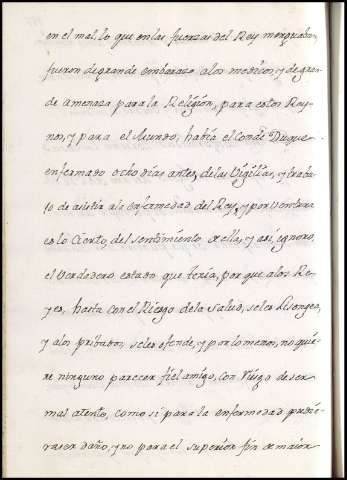 en el mal, lo que en las fuerzas del Rey menguaba,
fueron de grande embarazo a los medicos, y de gran-
de Amenaza para la Religion, para estos Rey-
nos, y para el Mundo, había el Conde Duque
enfermado ocho dias antes, de las Vigilias, y traba-
jo de asistir a la enfermedad del Rey, y por ventura
es lo Cierto, del sentimiento de ella, y asi, ignoro,
el Verdadero estado que tenia, por que a los Re-
yes, hasta con el Riesgo de la Salud, se les Lisongea
y a los pribados, se les ofende, y por lo menos, no quie-
re ninguno parecer fiel amigo, con Riesgo de ser
mal atento, como si para la enfermedad pudie-
ra ser daño, y no para el superior fin de maior